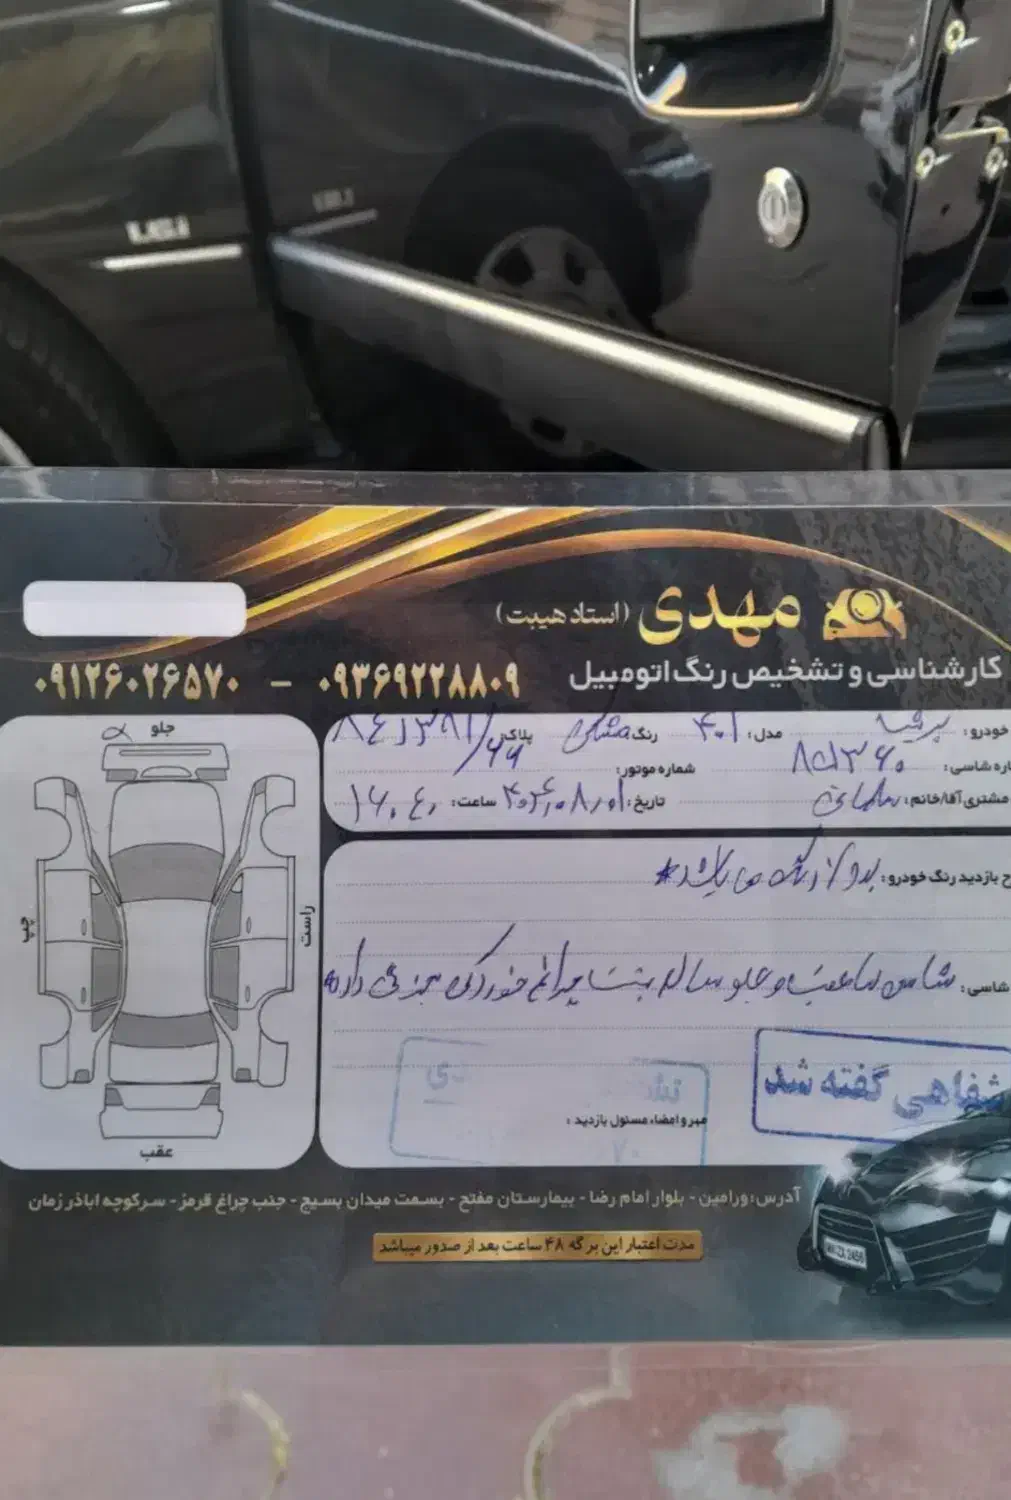 مهدی (استاد هیبت)
کارشناسی و تشخیص رنگ اتومبیل
۰۹۱۲۶۰۲۶۵۷۰ - ۰۹۳۶۹۲۲۸۸۰۹
خودرو: پرشیا مدل: ۴۰۱ رنگ مشکی پلاک:
اره شاسی: ۸۵۱۳۶۰ شماره موتور:
مشتری آقا/خانم: سلمانی تاریخ: ساعت: ۱۶:۴۰
جلو
چپ
راست
عقب
ح بازدید رنگ خودرو: بدون رنگ می باشد*
شاسی: شاسی ها عقب و جلو سالم پشت چراغ خوردگی جزئی دارد
شفاهی گفته شد
مهر و امضاء مسئول بازدید:
آدرس: ورامین - بلوار امام رضا - بیمارستان مفتح - بسمت میدان بسیج - جنب چراغ قرمز - سرکوچه اباذر زمان
مدت اعتبار این برگه ۴۸ ساعت بعد از صدور میباشد